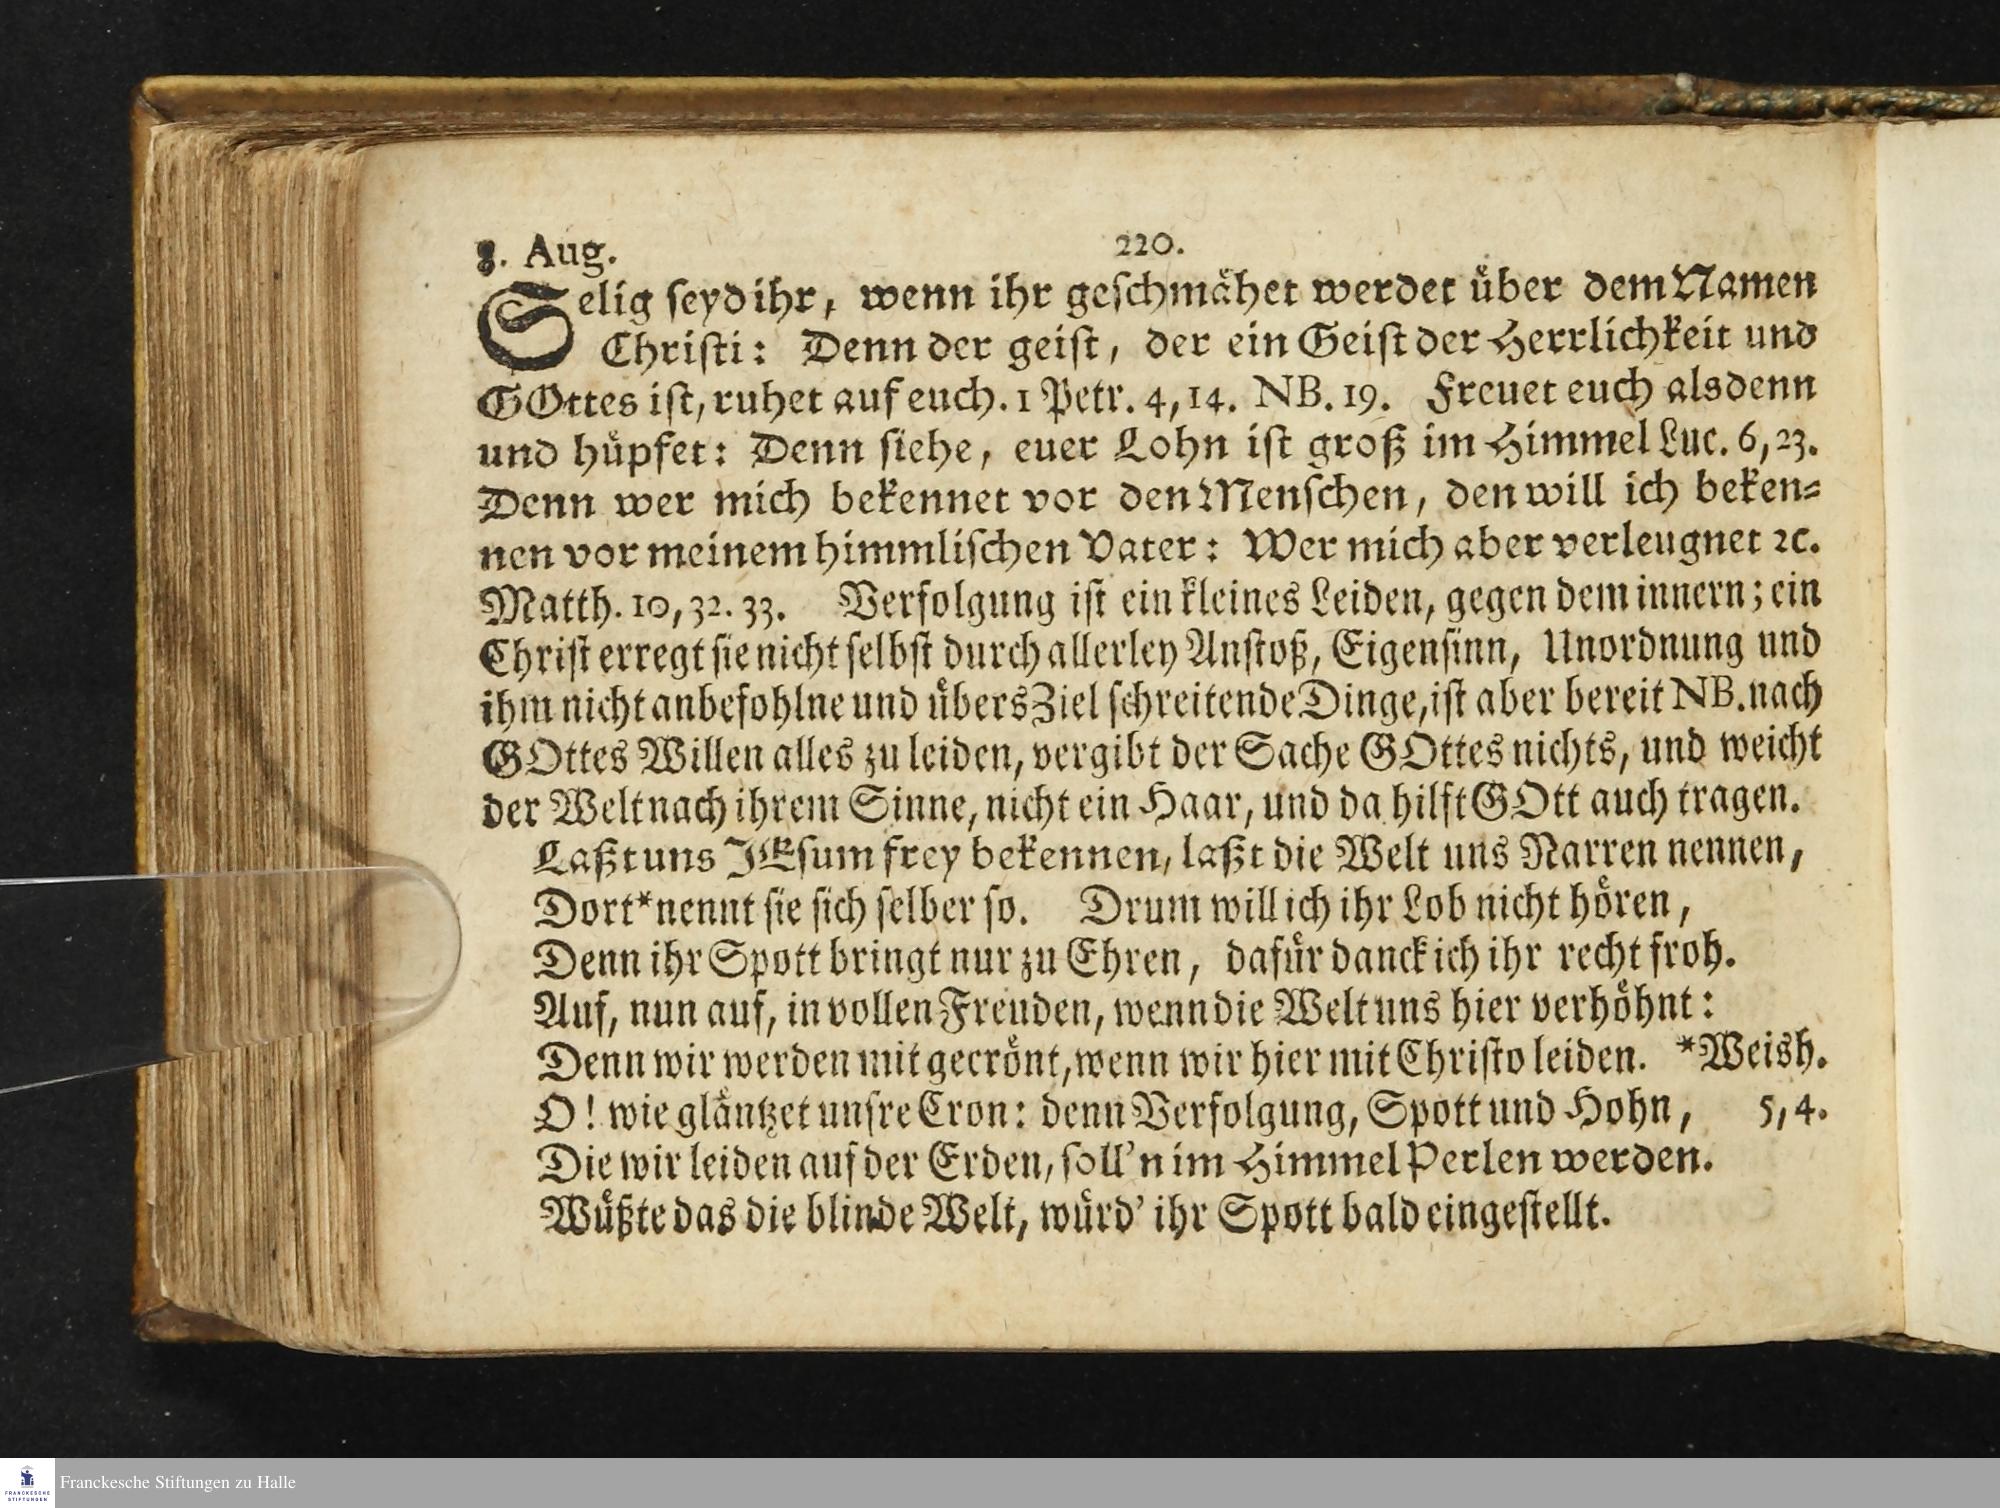 8. Aug. 220.
Selig seyd ihr, wenn ihr geschmähet werdet über dem Namen
Christi: Denn der geist, der ein Geist der Herrlichkeit und
GOttes ist, ruhet auf euch. 1 Petr. 4, 14. NB. 19. Freuet euch alsdenn
und hüpfet: Denn siehe, euer Lohn ist groß im Himmel Luc. 6, 23.
Denn wer mich bekennet vor den Menschen, den will ich beken=
nen vor meinem himmlischen Vater: Wer mich aber verleugnet ꝛc.
Matth. 10, 32. 33. Verfolgung ist ein kleines Leiden, gegen dem innern; ein
Christ erregt sie nicht selbst durch allerley Anstoß, Eigensinn, Unordnung und
ihm nicht anbefohlne und übers Ziel schreitende Dinge, ist aber bereit NB. nach
GOttes Willen alles zu leiden, vergibt der Sache GOttes nichts, und weicht
der Welt nach ihrem Sinne, nicht ein Haar, und da hilft GOtt auch tragen.
Laßt uns JEsum frey bekennen, laßt die Welt uns Narren nennen,
Dort* nennt sie sich selber so. Drum will ich ihr Lob nicht hören,
Denn ihr Spott bringt nur zu Ehren, dafür danck ich ihr recht froh.
Auf, nun auf, in vollen Freuden, wenn die Welt uns hier verhöhnt:
Denn wir werden mit gecrönt, wenn wir hier mit Christo leiden. *Weish.
O! wie gläntzet unsre Cron: denn Verfolgung, Spott und Hohn, 5, 4.
Die wir leiden auf der Erden, soll'n im Himmel Perlen werden.
Wüßte das die blinde Welt, würd' ihr Spott bald eingestellt.
FRANCKESCHE
STIFTUNGEN
Franckesche Stiftungen zu Halle